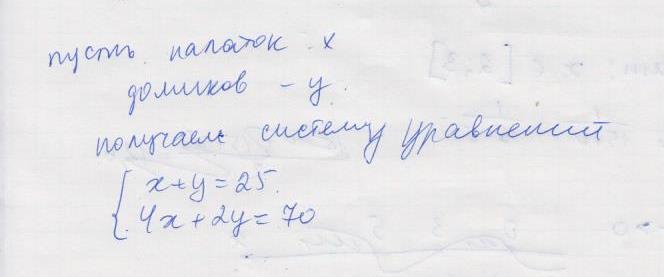 пусть палаток x
домиков – y.
получаем систему уравнений
x+y=25.
4x+2y=70